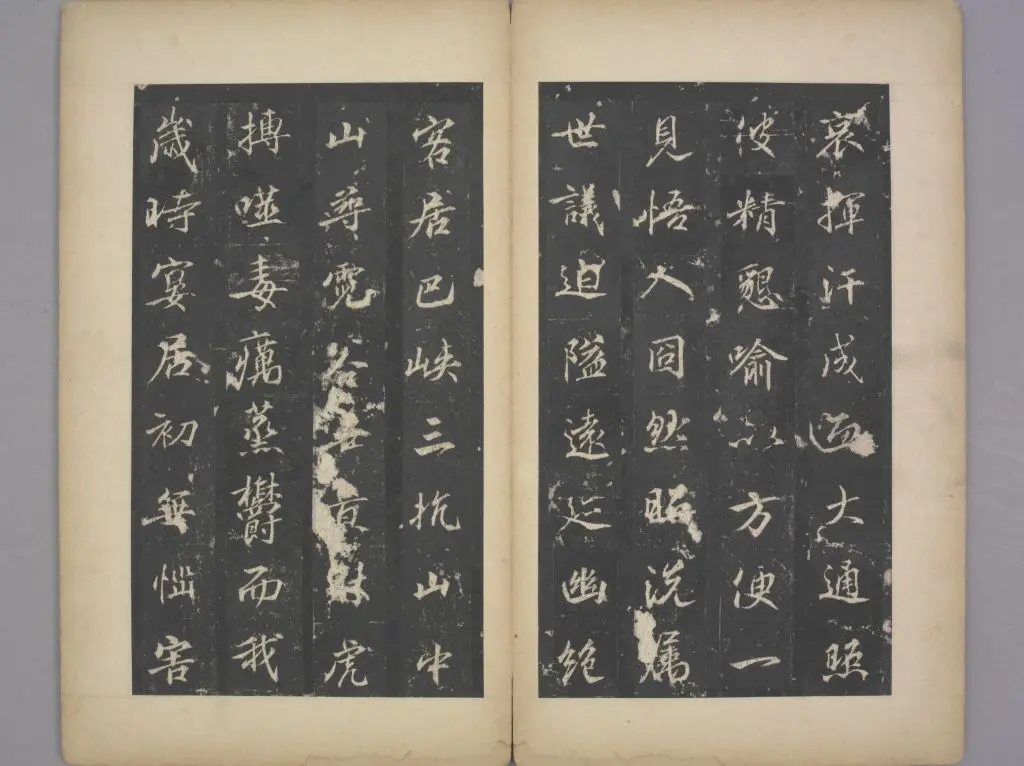 哀揮汗成大通照
彼精懇喻以方便一
見悟入囧然昭洗屬
世議迫隘遠迹幽絕
客居巴峽三抗山中
山尋究谷虎
搏噬毒癘蒸鬱而我
歲時宴居初無惱害